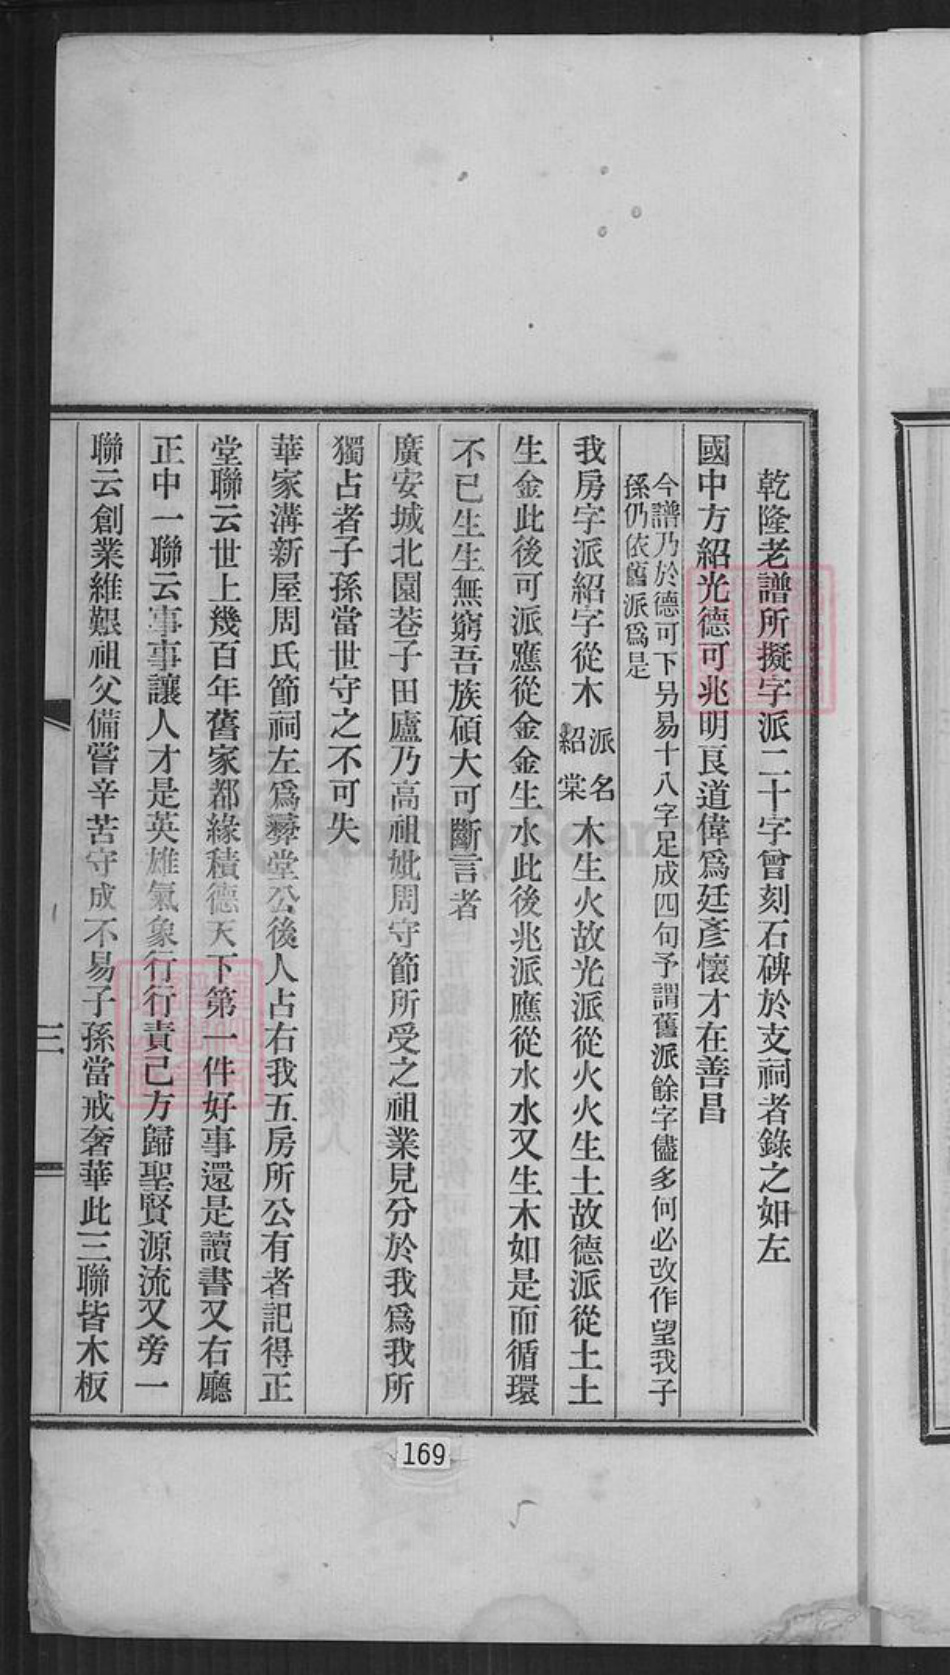 乾隆老譜所擬字派二十字曾刻石碑於支祠者錄之如左
國中方紹光德可兆明良道偉爲廷彥懷才在善昌
今譜乃於德可下另易十八字足成四句予謂舊派餘字儘多何必改作望我子
孫仍依舊派爲是
我房字派紹字從木派名紹棠木生火故光派從火火生土故德派從土土
生金此後可派應從金金生水此後兆派應從水水又生木如是而循環
不已生生無窮吾族碩大可斷言者
廣安城北園巷子田廬乃高祖妣周守節所受之祖業見分於我爲我所
獨占者子孫當世守之不可失
華家溝新屋周氏節祠左爲彝堂公後人占右我五房所公有者記得正
堂聯云世上幾百年舊家都緣積德天下第一件好事還是讀書又右廳
正中一聯云事事讓人才是英雄氣象行行責己方歸聖賢源流又旁一
聯云創業維艱祖父備嘗辛苦守成不易子孫當戒奢華此三聯皆木板
三
169
FamilySearch